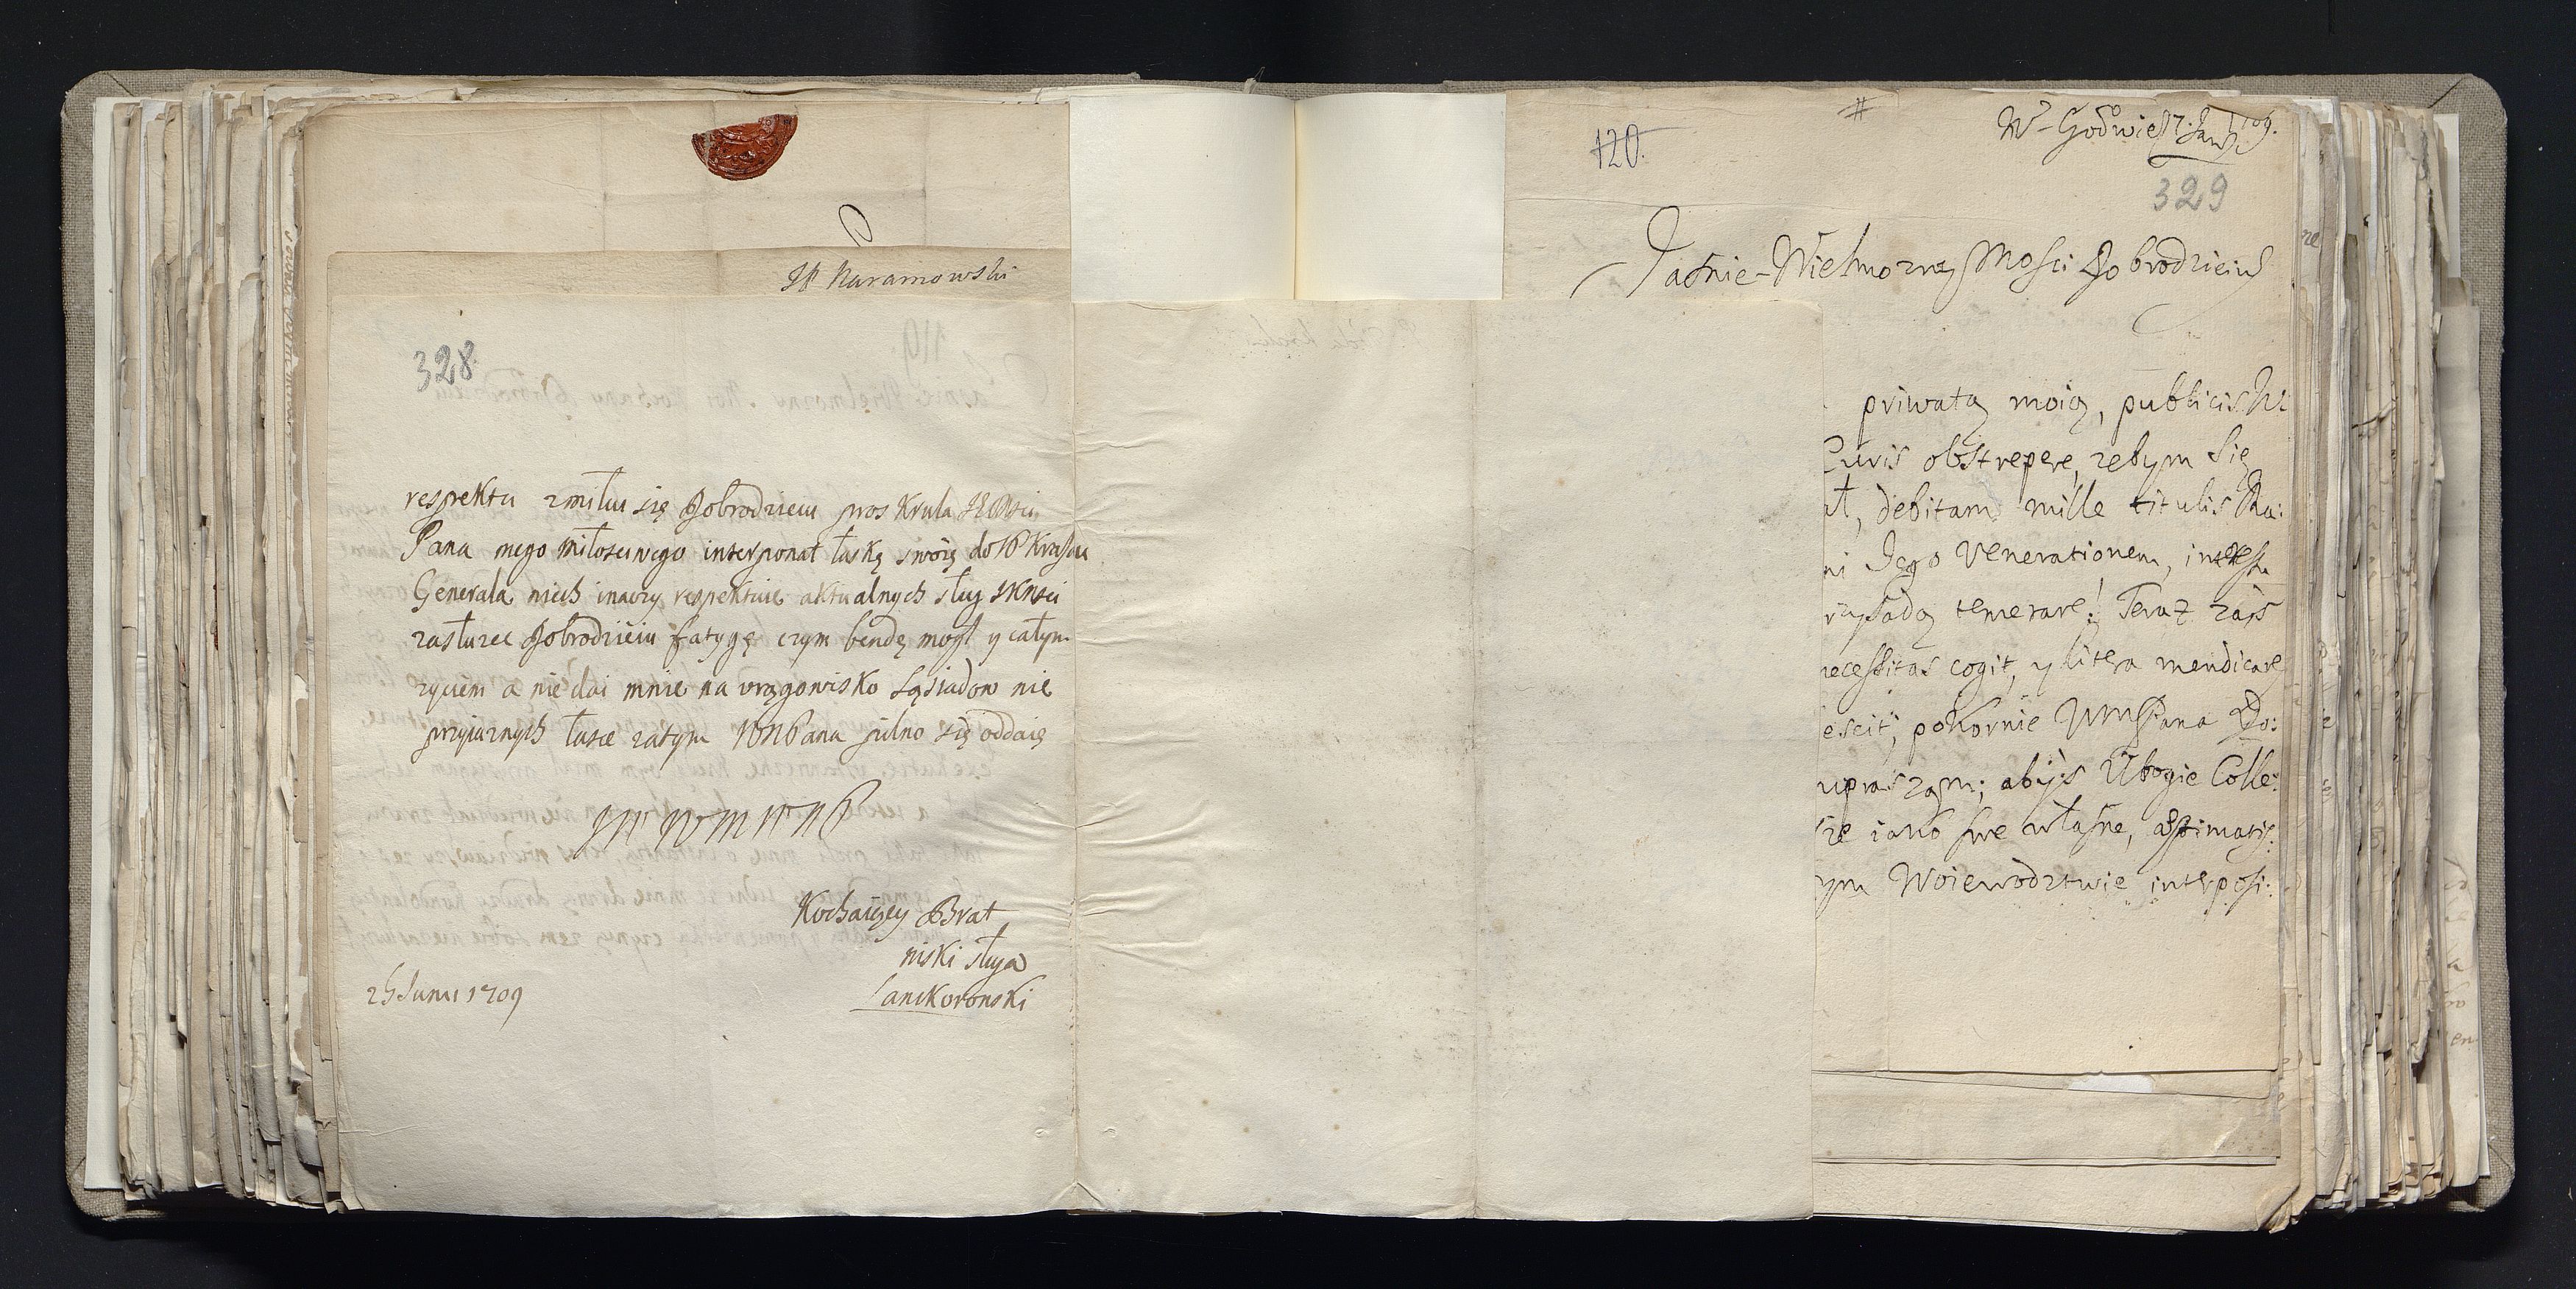 JP Karainowski
328
respektu zmiłuj się Dobrodzieiu pros Krula JEMsci
Pana mego miłosciwego interponat łaskę swoię do JP Krasau
Generała niech inaczy respektuie aktualnych sług JKMsci
zasłuzeć Dobrodzieiu fatygę czym bendę mogł y całym
zyciem a nie dai mnie na urągowisko sąsiadow nie
przyiaznych łasce zatym WMPana pilno się oddaię
Kochaiący Brat
niski sługa
Lanckoronski
25 Junii 1709
120.
#
329
Jasnie-Wielmozny Mosci Dobrodzieiu
priwatą moią, publicis
Curis obstrepere, zebym się
debitam mille titulis
ni Jego Venerationem,
temerare! Teraz zaś
necessitas cogit, y litera mendicare
escit, pokornie WMPana Do:
upraszam; abyś Ubogie Colle:
sie iako swe własne,
ym Woiewodztwie interposi: